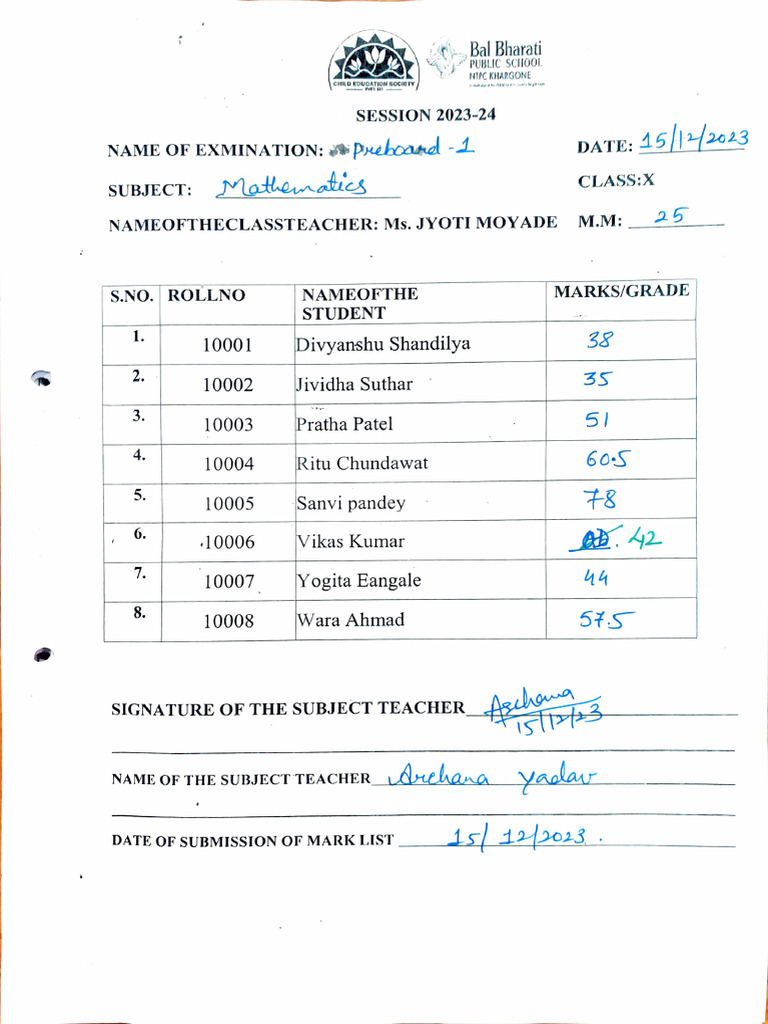 CHILD EDUCATION SOCIETY
Bal Bharati
PUBLIC SCHOOL
NTPC KHARGONE
SESSION 2023-24
NAME OF EXMINATION: Preboard -1 DATE: 15/12/2023
SUBJECT: Mathematics CLASS:X
NAMEOFTHECLASSTEACHER: Ms. JYOTI MOYADE M.M: 25
S.NO. ROLLNO NAMEOFTHE STUDENT MARKS/GRADE
1. 10001 Divyanshu Shandilya 38
2. 10002 Jividha Suthar 35
3. 10003 Pratha Patel 51
4. 10004 Ritu Chundawat 60.5
5. 10005 Sanvi pandey 78
6. 10006 Vikas Kumar 42
7. 10007 Yogita Eangale 44
8. 10008 Wara Ahmad 57.5
SIGNATURE OF THE SUBJECT TEACHER Archana
15/12/23
NAME OF THE SUBJECT TEACHER Archana Yadav
DATE OF SUBMISSION OF MARK LIST 15/12/2023.